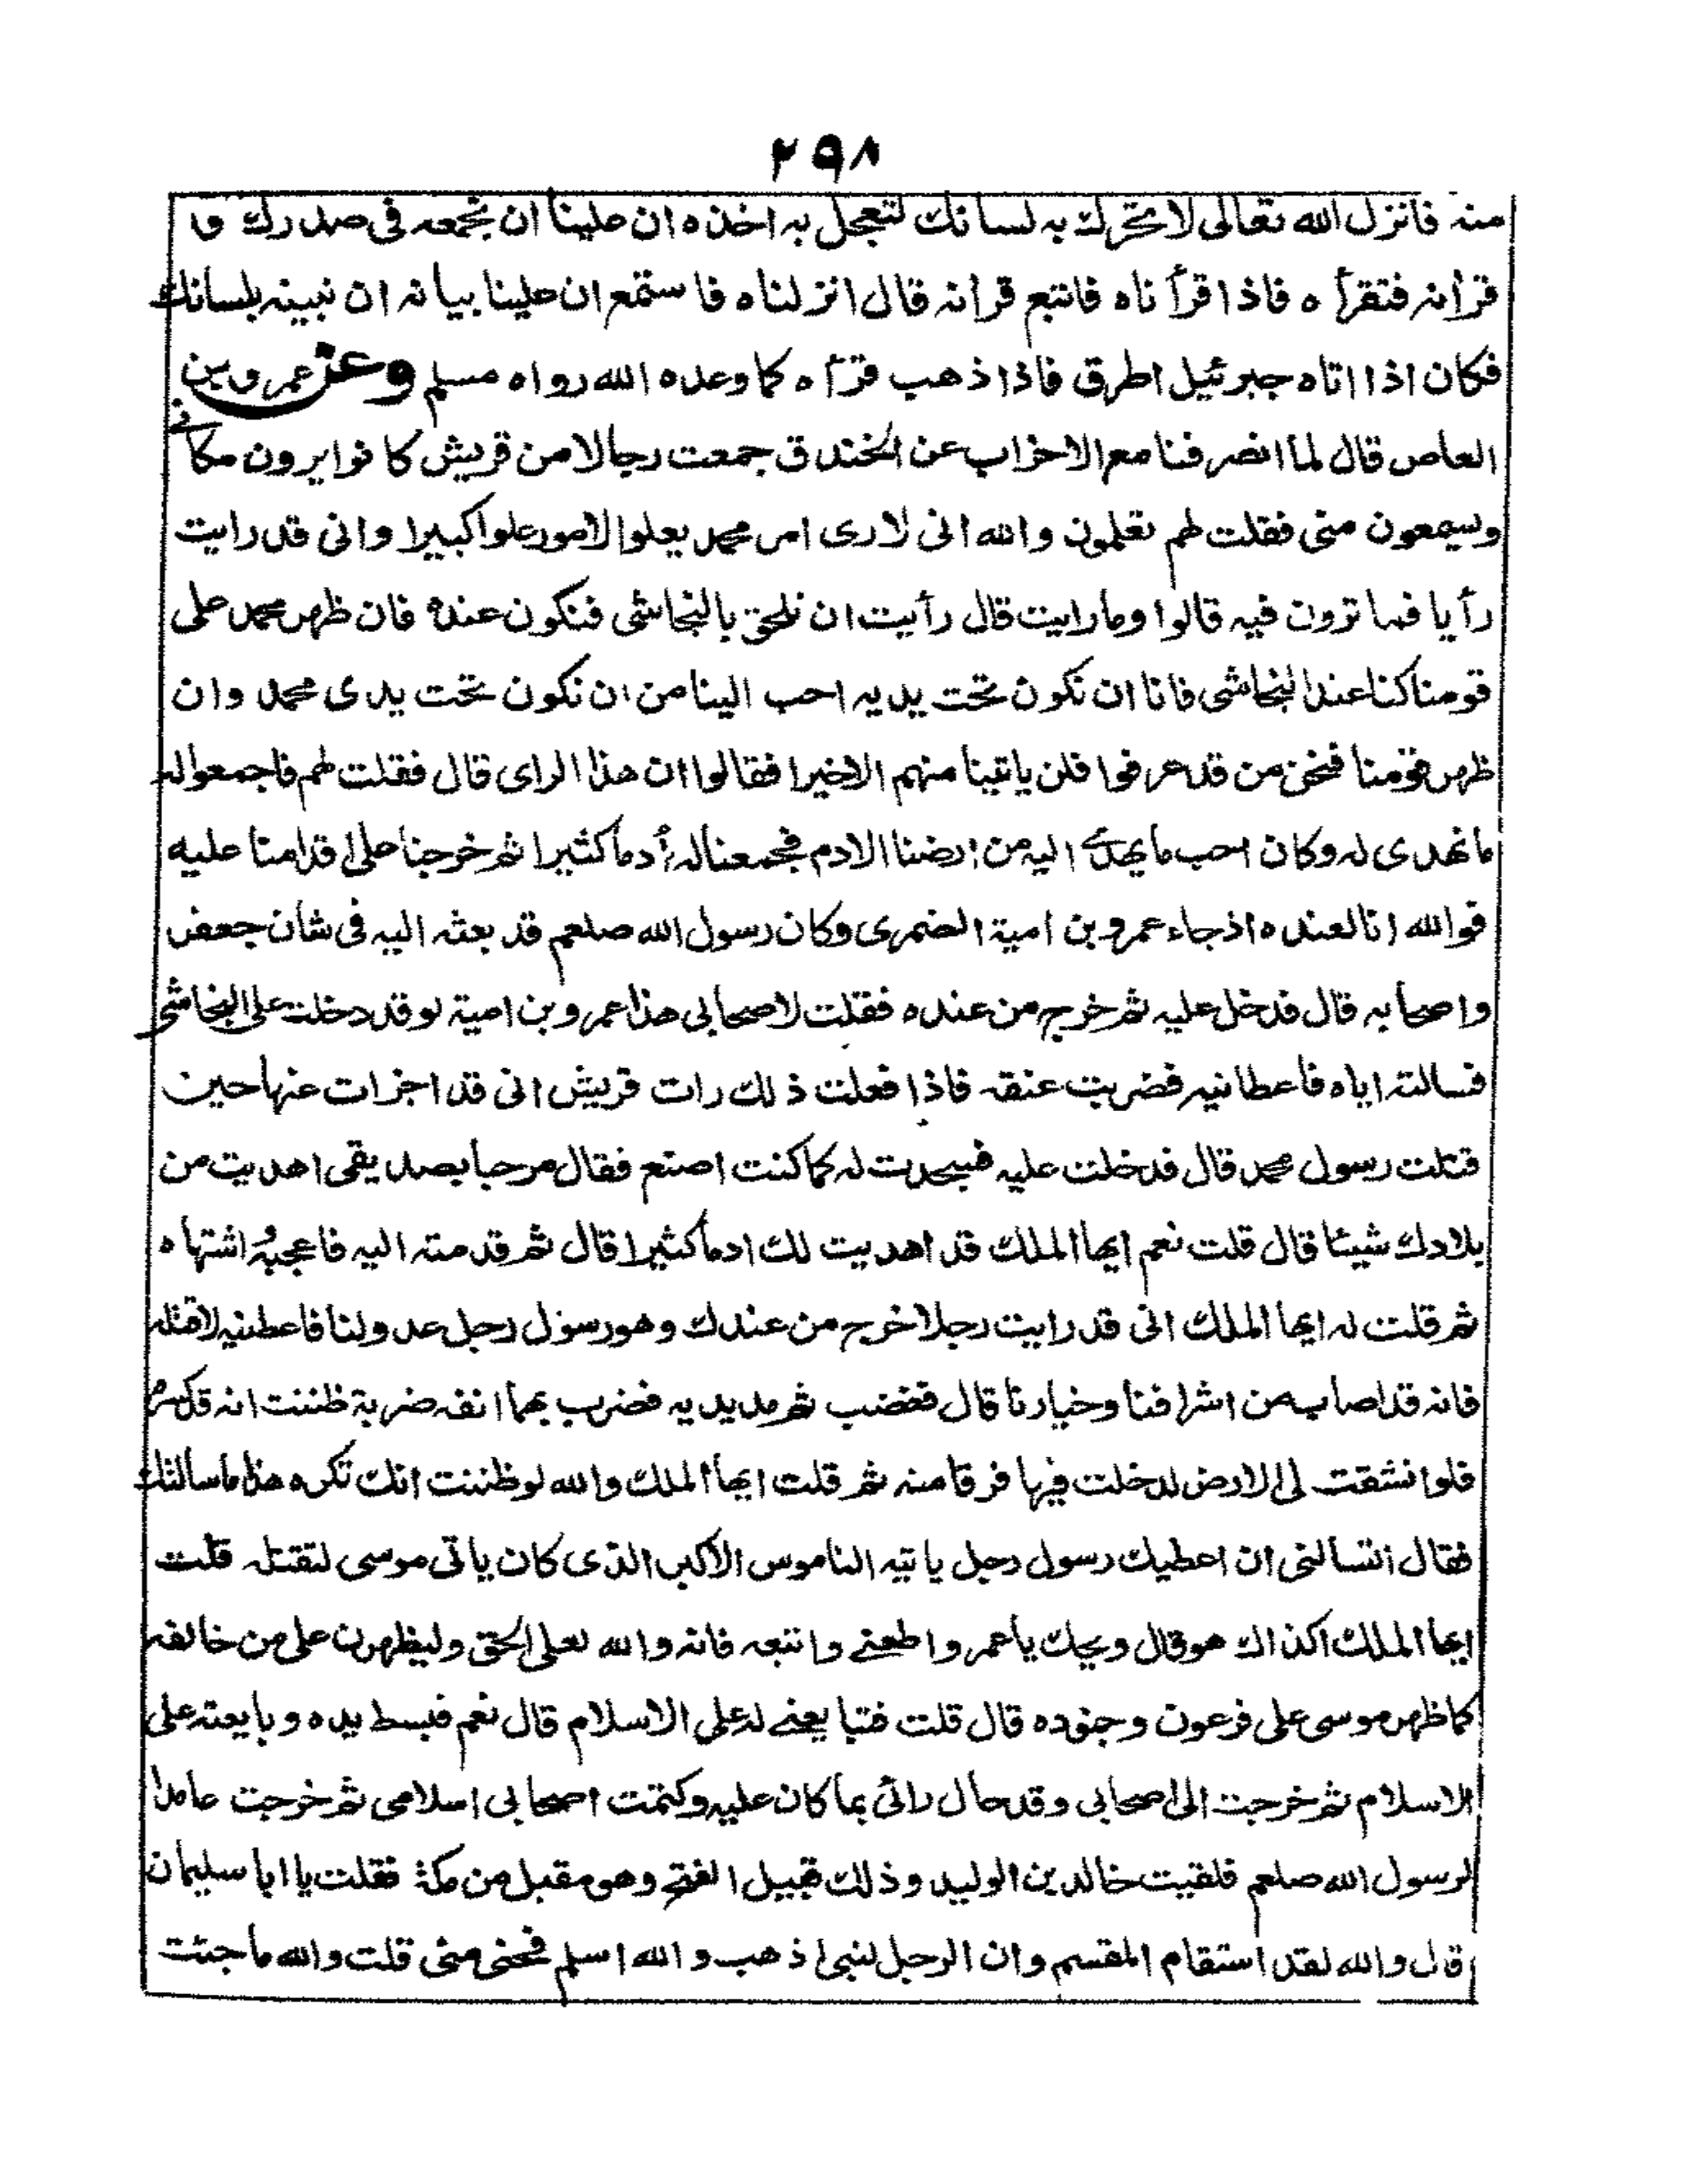 ٢٩٨
منه فانزل الله تعالى لا تحرك به لسانك لتعجل به اخذه ان علينا ان نجمعه فى صدرك و
قرآنه فتقرأ ه فاذا قرأ ناه فاتبع قرآنه قال انزلناه فاستمع ان علينا بيانه ان نبينه بلسانك
فكان اذا اتاه جبرئيل اطرق فاذا ذهب قرأ ه كما وعده الله رواه مسلم وعن عمرو بن
العاص قال لما انصرفنا مع الاحزاب عن الخندق جمعت رجالا من قريش كانوا يرون مكانى
ويسمعون منى فقلت لهم تعلمون والله انى لارى امر محمد يعلوا الامور علوا كبيرا وانى قد رايت
رأيا فما ترون فيه قالوا وما رايت قال رأيت ان نلحق بالنجاشى فنكون عنده فان ظهر محمد على
قومنا كنا عند النجاشى فانا ان نكون تحت يديه احب الينا من ان نكون تحت يدى محمد وان
ظهر قومنا فنحن من قد عرفوا فلن ياتينا منهم الاخيرا فقالوا ان هذا الراى قال فقلت لهم فاجمعوا له
ما نهدى له وكان احب ما يهدى اليه من ارضنا الادم فجمعنا له أدما كثيرا ثم خرجنا حتى قدمنا عليه
فوالله انا لعنده اذ جاء عمرو بن امية الضمرى وكان رسول الله صلعم قد بعثه اليه فى شان جعفر
واصحابه قال فدخل عليه ثم خرج من عنده فقلت لاصحابى هذا عمرو بن امية لو قد دخلت على النجاشى
فسالته اياه فاعطانيه فضربت عنقه فاذا فعلت ذلك رات قريش انى قد اجزات عنها حين
قتلت رسول محمد قال فدخلت عليه فسجدت له كما كنت اصنع فقال مرحبا بصديقى اهديت من
بلادك شيئا قال قلت نعم ايها الملك قد اهديت لك ادما كثيرا قال ثم قدمته اليه فاعجبه واشتهاه
ثم قلت له ايها الملك انى قد رايت رجلا خرج من عندك وهو رسول رجل عدو لنا فاعطنيه لاقتله
فانه قد اصاب من اشرافنا وخيارنا قال فغضب ثم مد يديه فضرب بهما انفه ضربة ظننت انه قد كسره
فلو انشقت لى الارض لدخلت فيها فرقا منه ثم قلت ايها الملك والله لو ظننت انك تكره هذا ما سالتك
فقال اتسالنى ان اعطيك رسول رجل ياتيه الناموس الاكبر الذى كان ياتى موسى لتقتله قلت
ايها الملك اكذاك هو قال ويحك يا عمرو اطعنى واتبعه فانه والله لعلى الحق وليظهرن على من خالفه
كما ظهر موسى على فرعون وجنوده قال قلت فتبايعنى له على الاسلام قال نعم فبسط يده وبايعته على
الاسلام ثم خرجت الى اصحابى وقد حال رائى بما كان عليه وكتمت اصحابى اسلامى ثم خرجت عامدا
لرسول الله صلعم فلقيت خالد بن الوليد وذلك قبيل الفتح وهو مقبل من مكة فقلت يا ابا سليمان
قال والله لقد استقام المقسم وان الرجل لنبى اذهب والله اسلم فحتى متى قلت والله ما جئت